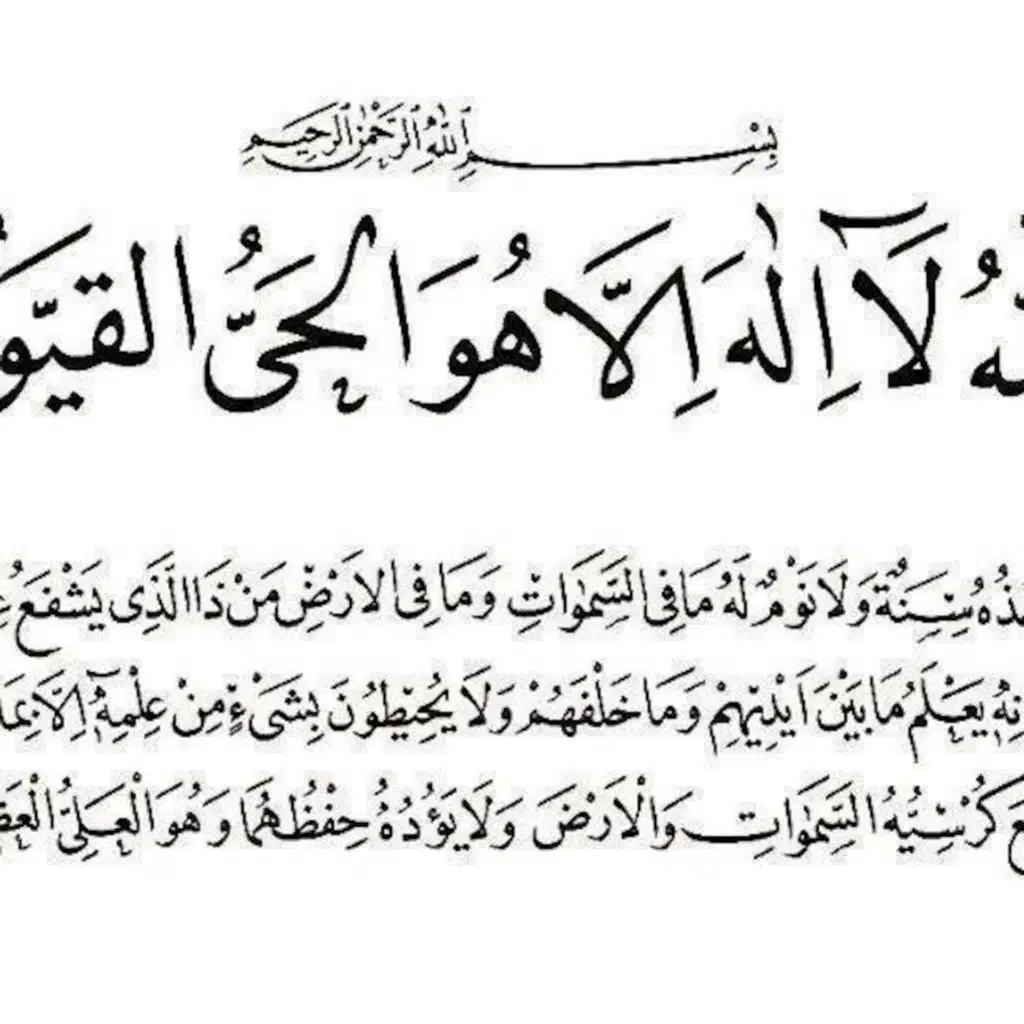 بِسْمِ اللهِ الرَّحْمٰنِ الرَّحِيمِ
لَآ اِلٰهَ اِلَّا هُوَ الْحَيُّ
سِنَةٌ وَلَا نَوْمٌ لَهُ مَا فِي السَّمٰوَاتِ وَمَا فِي الْاَرْضِ مَنْ ذَا الَّذِي يَشْفَعُ
يَعْلَمُ مَا بَيْنَ اَيْدِيهِمْ وَمَا خَلْفَهُمْ وَلَا يُحِيطُونَ بِشَيْءٍ مِنْ عِلْمِهِ اِلَّا
كُرْسِيُّهُ السَّمٰوَاتِ وَالْاَرْضَ وَلَا يَؤُدُهُ حِفْظُهُمَا وَهُوَ الْعَلِيُّ